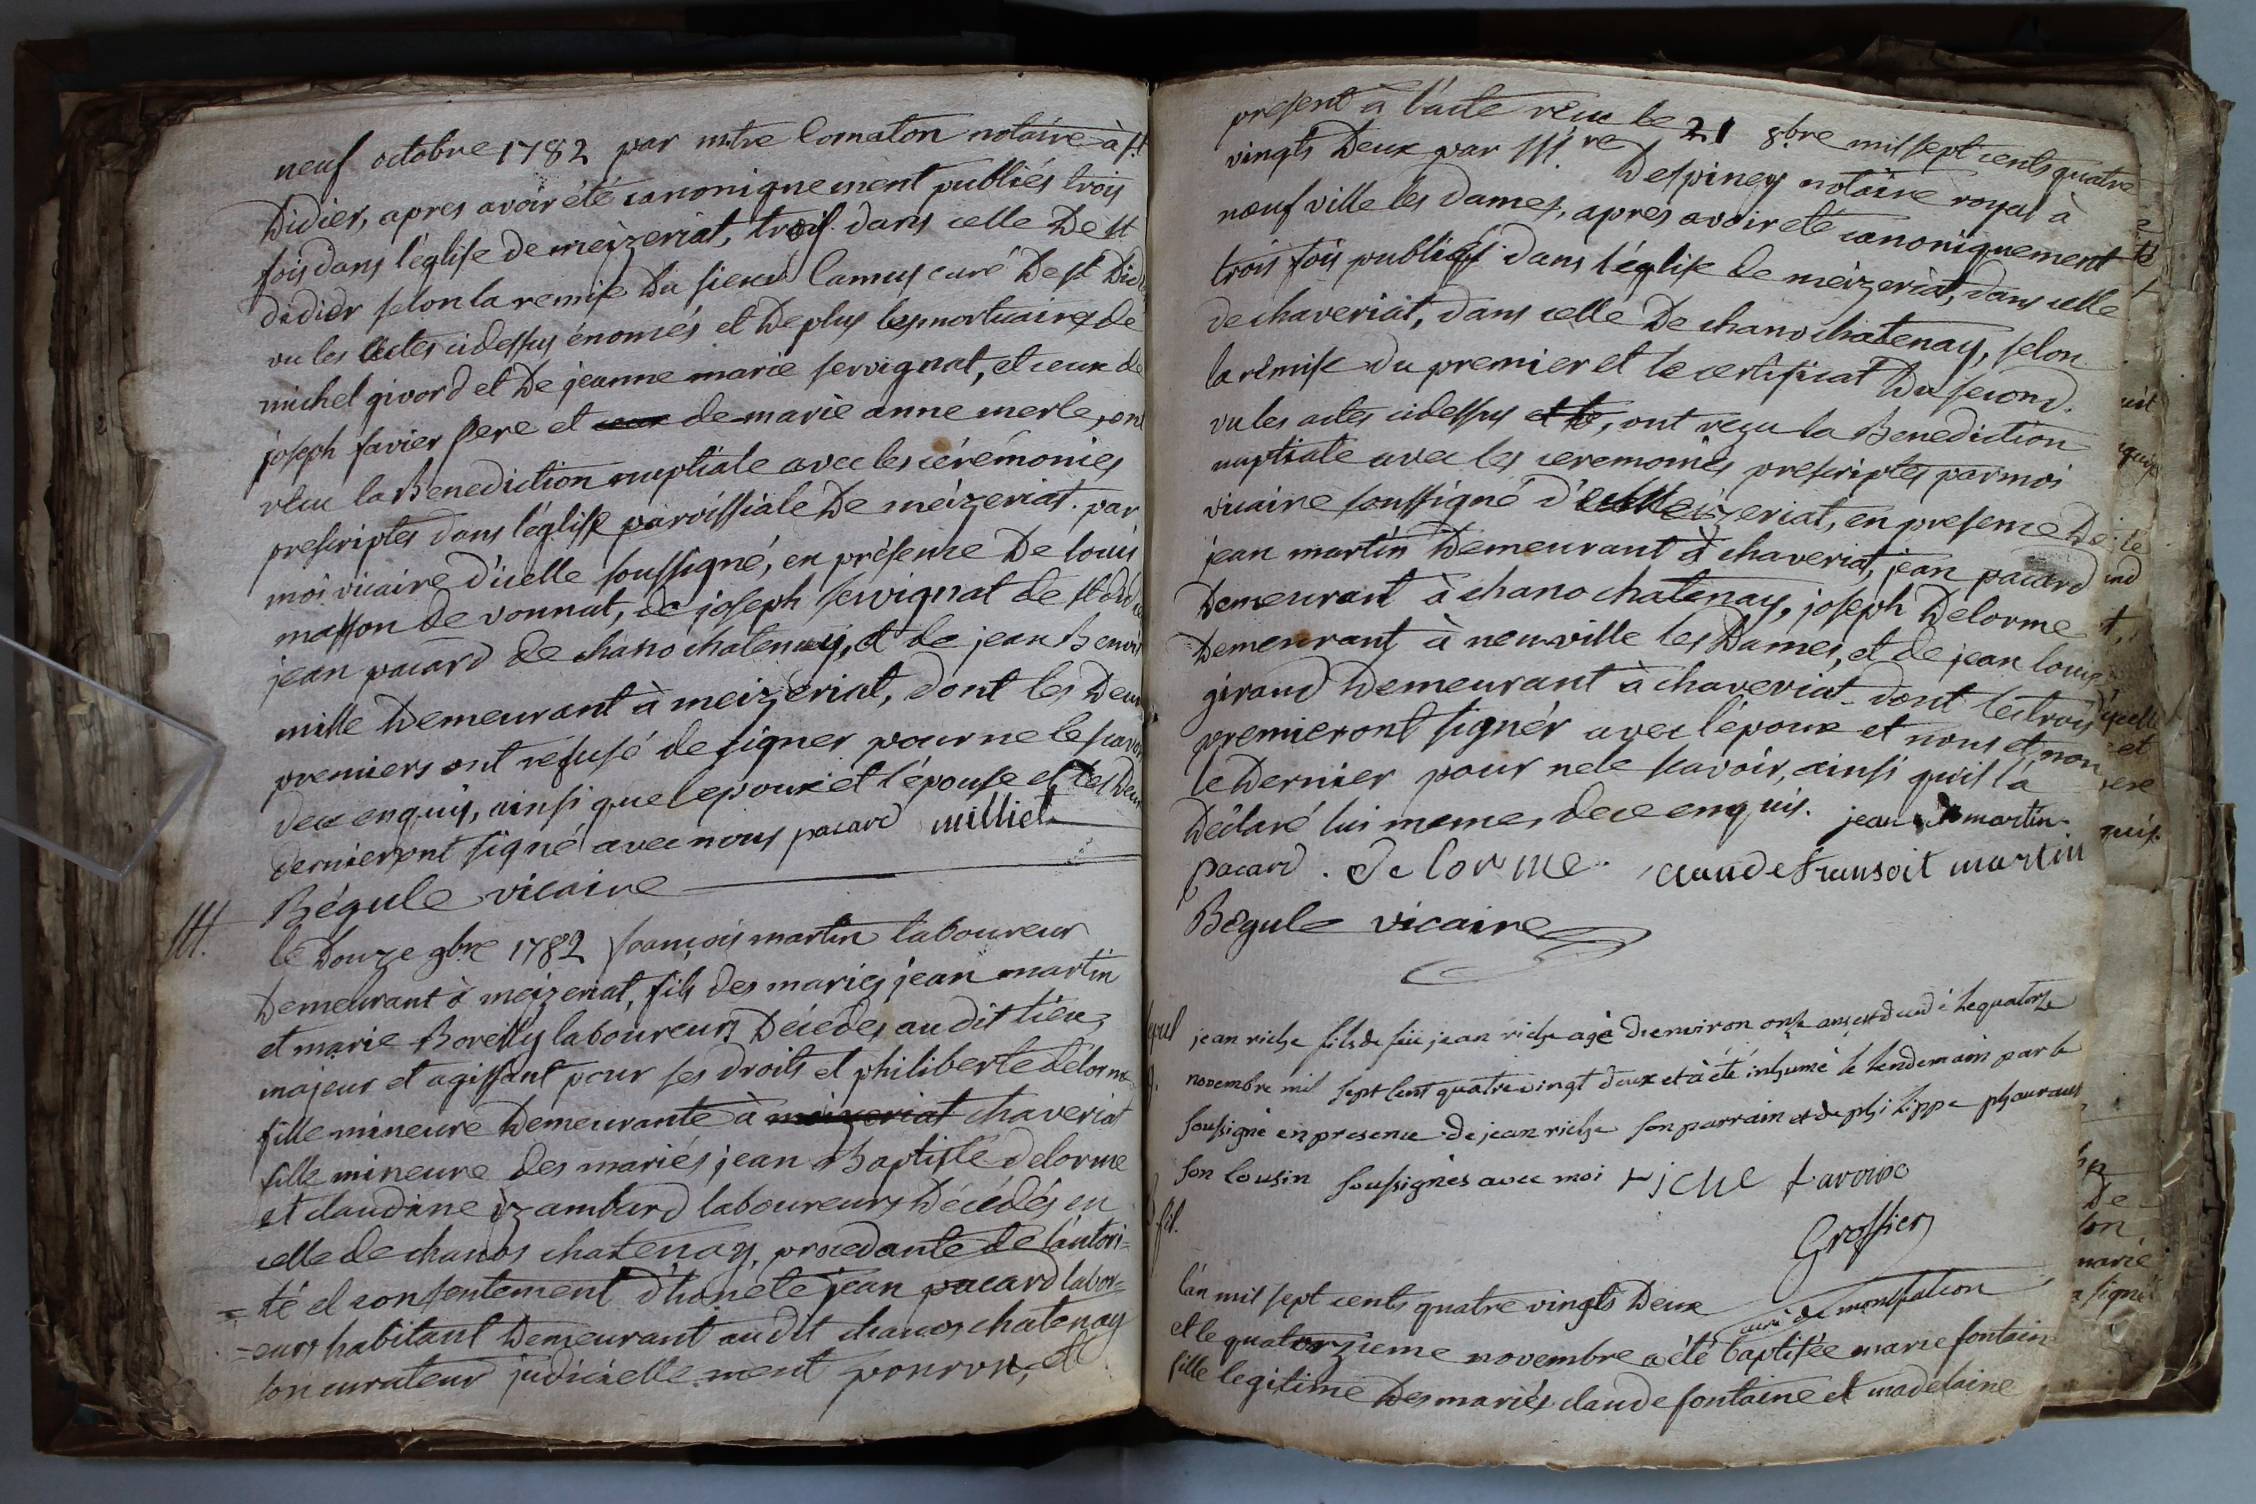 neuf octobre 1782 par mtre Comaton notaire à st
Didier, apres avoir été canoniquement publiés trois
fois dans l'église de meizeriat, trois dans celle De st
didier selon la remise Du sieur Camus curé De st Did
vu les actes cidessus énomés et De plus les mortuaires de
michel givord et De jeanne marie servignat, et ceux de
joseph favier pere et de marie anne merle, ont
recu la Benediction nuptiale avec les cérémonies
prescriptes dans l'église parroissiale De meizeriat. par
moi vicaire d'icelle soussigné, en présence De louis
masson de vonnat, de joseph servignat de st did
jean pacard de chano chatenay, et de jean Benoit
mille Demeurant à meizeriat, dont les Deux
premiers ont refusé de signer pour ne le scavoir
de ce enquis, ainsi que lepoux et l'épouse et les Deux
dernieront signé avec nous pacard milliet
Bégule vicaire
111.
le Douze 9bre 1782 françois martin laboureur
Demeurant à meizeriat, fils des mariés jean martin
et marie Borelly laboureurs Décedés au dit lieu,
majeur et agissant pour ses droits et philiberte delorme
fille mineure Demeurante à meizeriat chaveriat
fille mineure des mariés jean Baptiste delorme
et claudine izambard laboureurs Décédés en
celle de chanos chatenay, procedante de l'autori=
=té et consentement d'honete jean pacard labor=
=eurs habitant Demeurant au dit chanos chatenay
son curateur judiciellement pourvu, et
present à l'acte recu le 21 8bre mil sept cents quatre
vingts Deux par Despiney notaire royal à
neufville les dames, apres avoir été canoniquement
trois fois publiés dans l'église de meizeriat, dans celle
de chaveriat, dans celle De chano chatenay, selon
la remise du premier et le certificat Du second.
vu les actes cidessus et le, ont reçu la Benediction
nuptiale avec les ceremonies prescriptes par moi
vicaire soussigné d' meizeriat, en presence De
jean martin Demeurant à chaveriat, jean pacard
Demeurant à chano chatenay, joseph Delorme
Demeurant à neuville les Dames, et de jean louis
giraud Demeurant à chaveriat dont les trois
premieront signér avec l'époux et nous et non
le Dernier pour ne le scavoir, ainsi qu'il la
Déclaré lui meme de ce enquis. jean martin
pacard. De lorme. claude fransoit martin
Bégule vicaire
jean riche fils de füe jean riche agè d'environ onze ans est decedé le quatorze
novembre mil sept cent quatre vingt deux et à été inhumé le lendemain par le
soussigné en presence de jean riche son parrain et de philippe
son cousin soussignés avec moi riche
Grossier
curé de montfalcon
l'an mil sept cents quatre vingts Deux
et le quatorzieme novembre a été baptisée marie fontaine
fille legitime Des mariés claude fontaine et madelaine